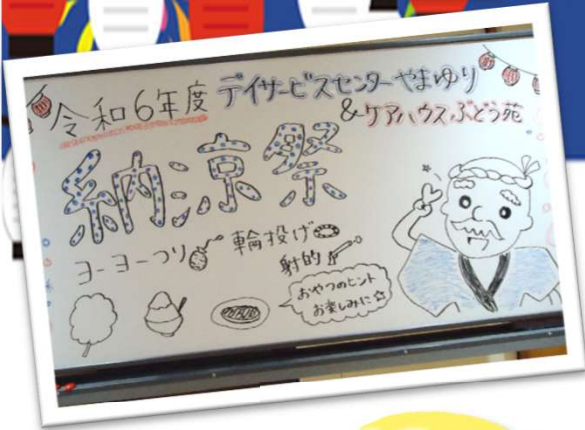 令和6年度 デイサービスセンターやまゆり
&ケアハウスぶどう苑
納涼祭
ヨーヨーつり 輪投げ
射的
おやつのヒント
お楽しみに☆